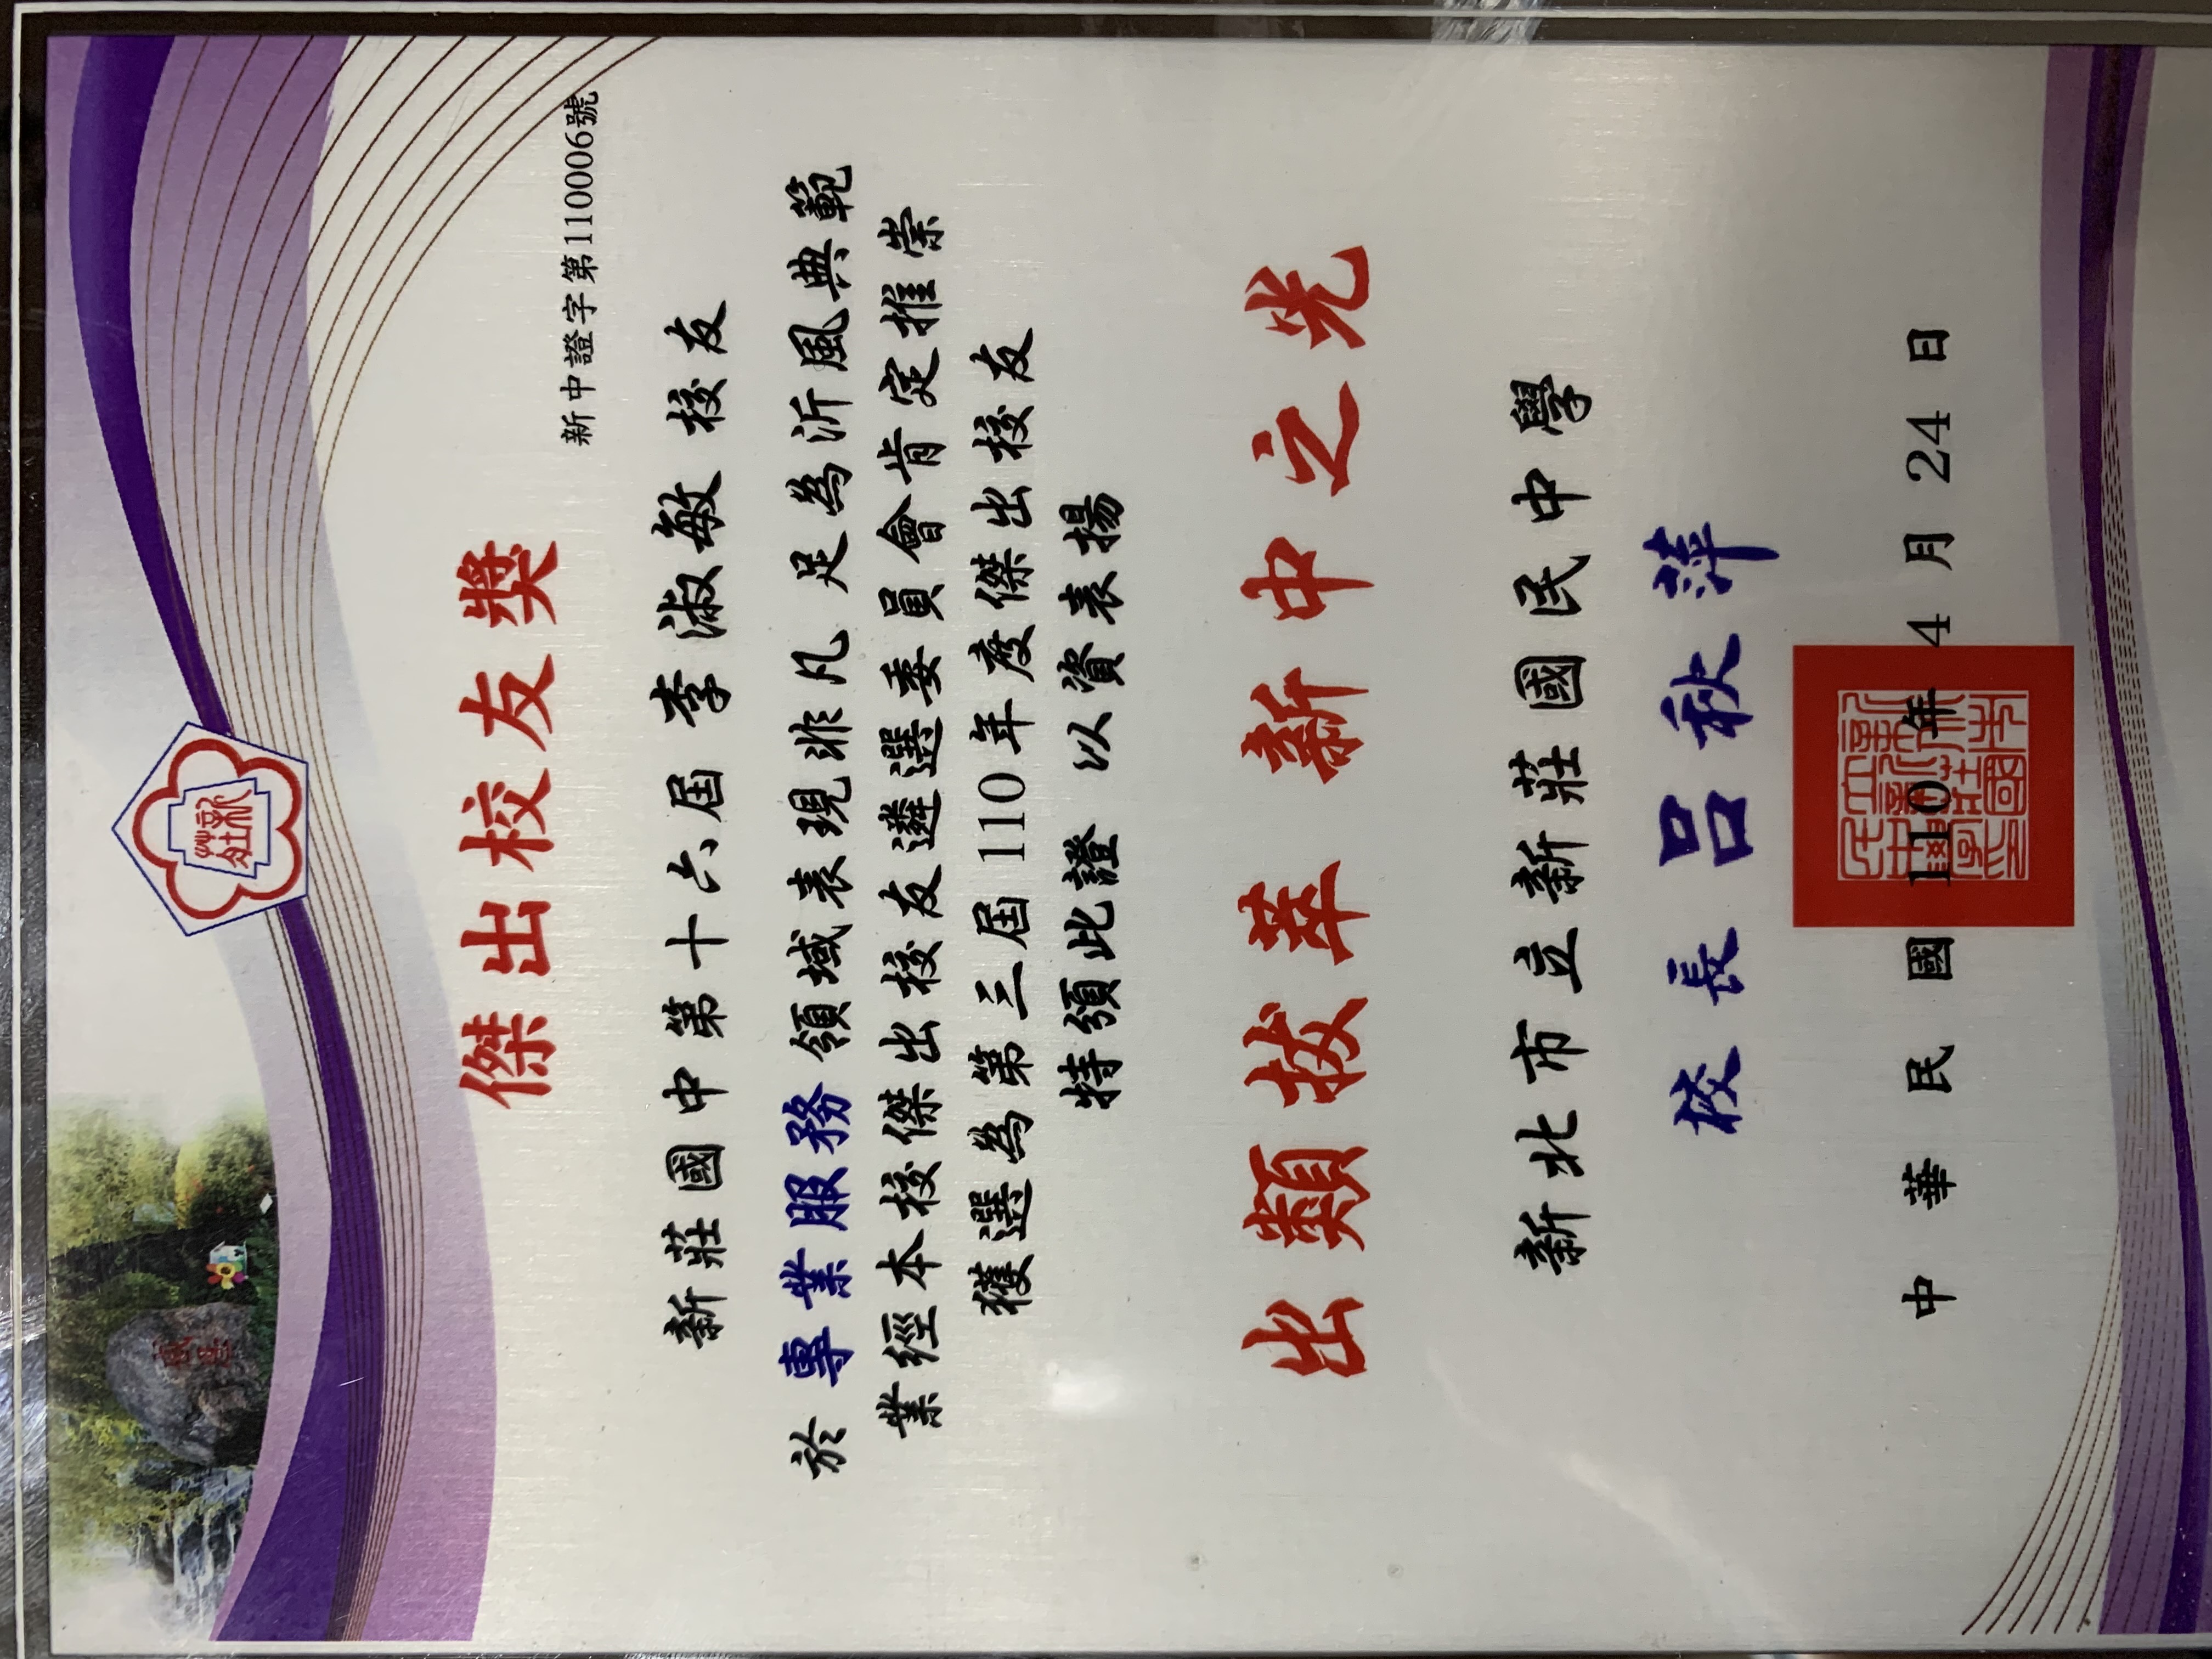 傑出校友獎
新中證字第1100006號
新莊國中第十六屆 李淑敏 校友
於 專業服務 領域表現非凡 足為沂風典範
業經本校傑出校友遴選委員會肯定推崇
獲選為第三屆 110 年度傑出校友
特頒此證 以資表揚
出類拔萃 新中之光
新北市立新莊國民中學
校長 呂秋萍
中華民國 110 年 4 月 24 日